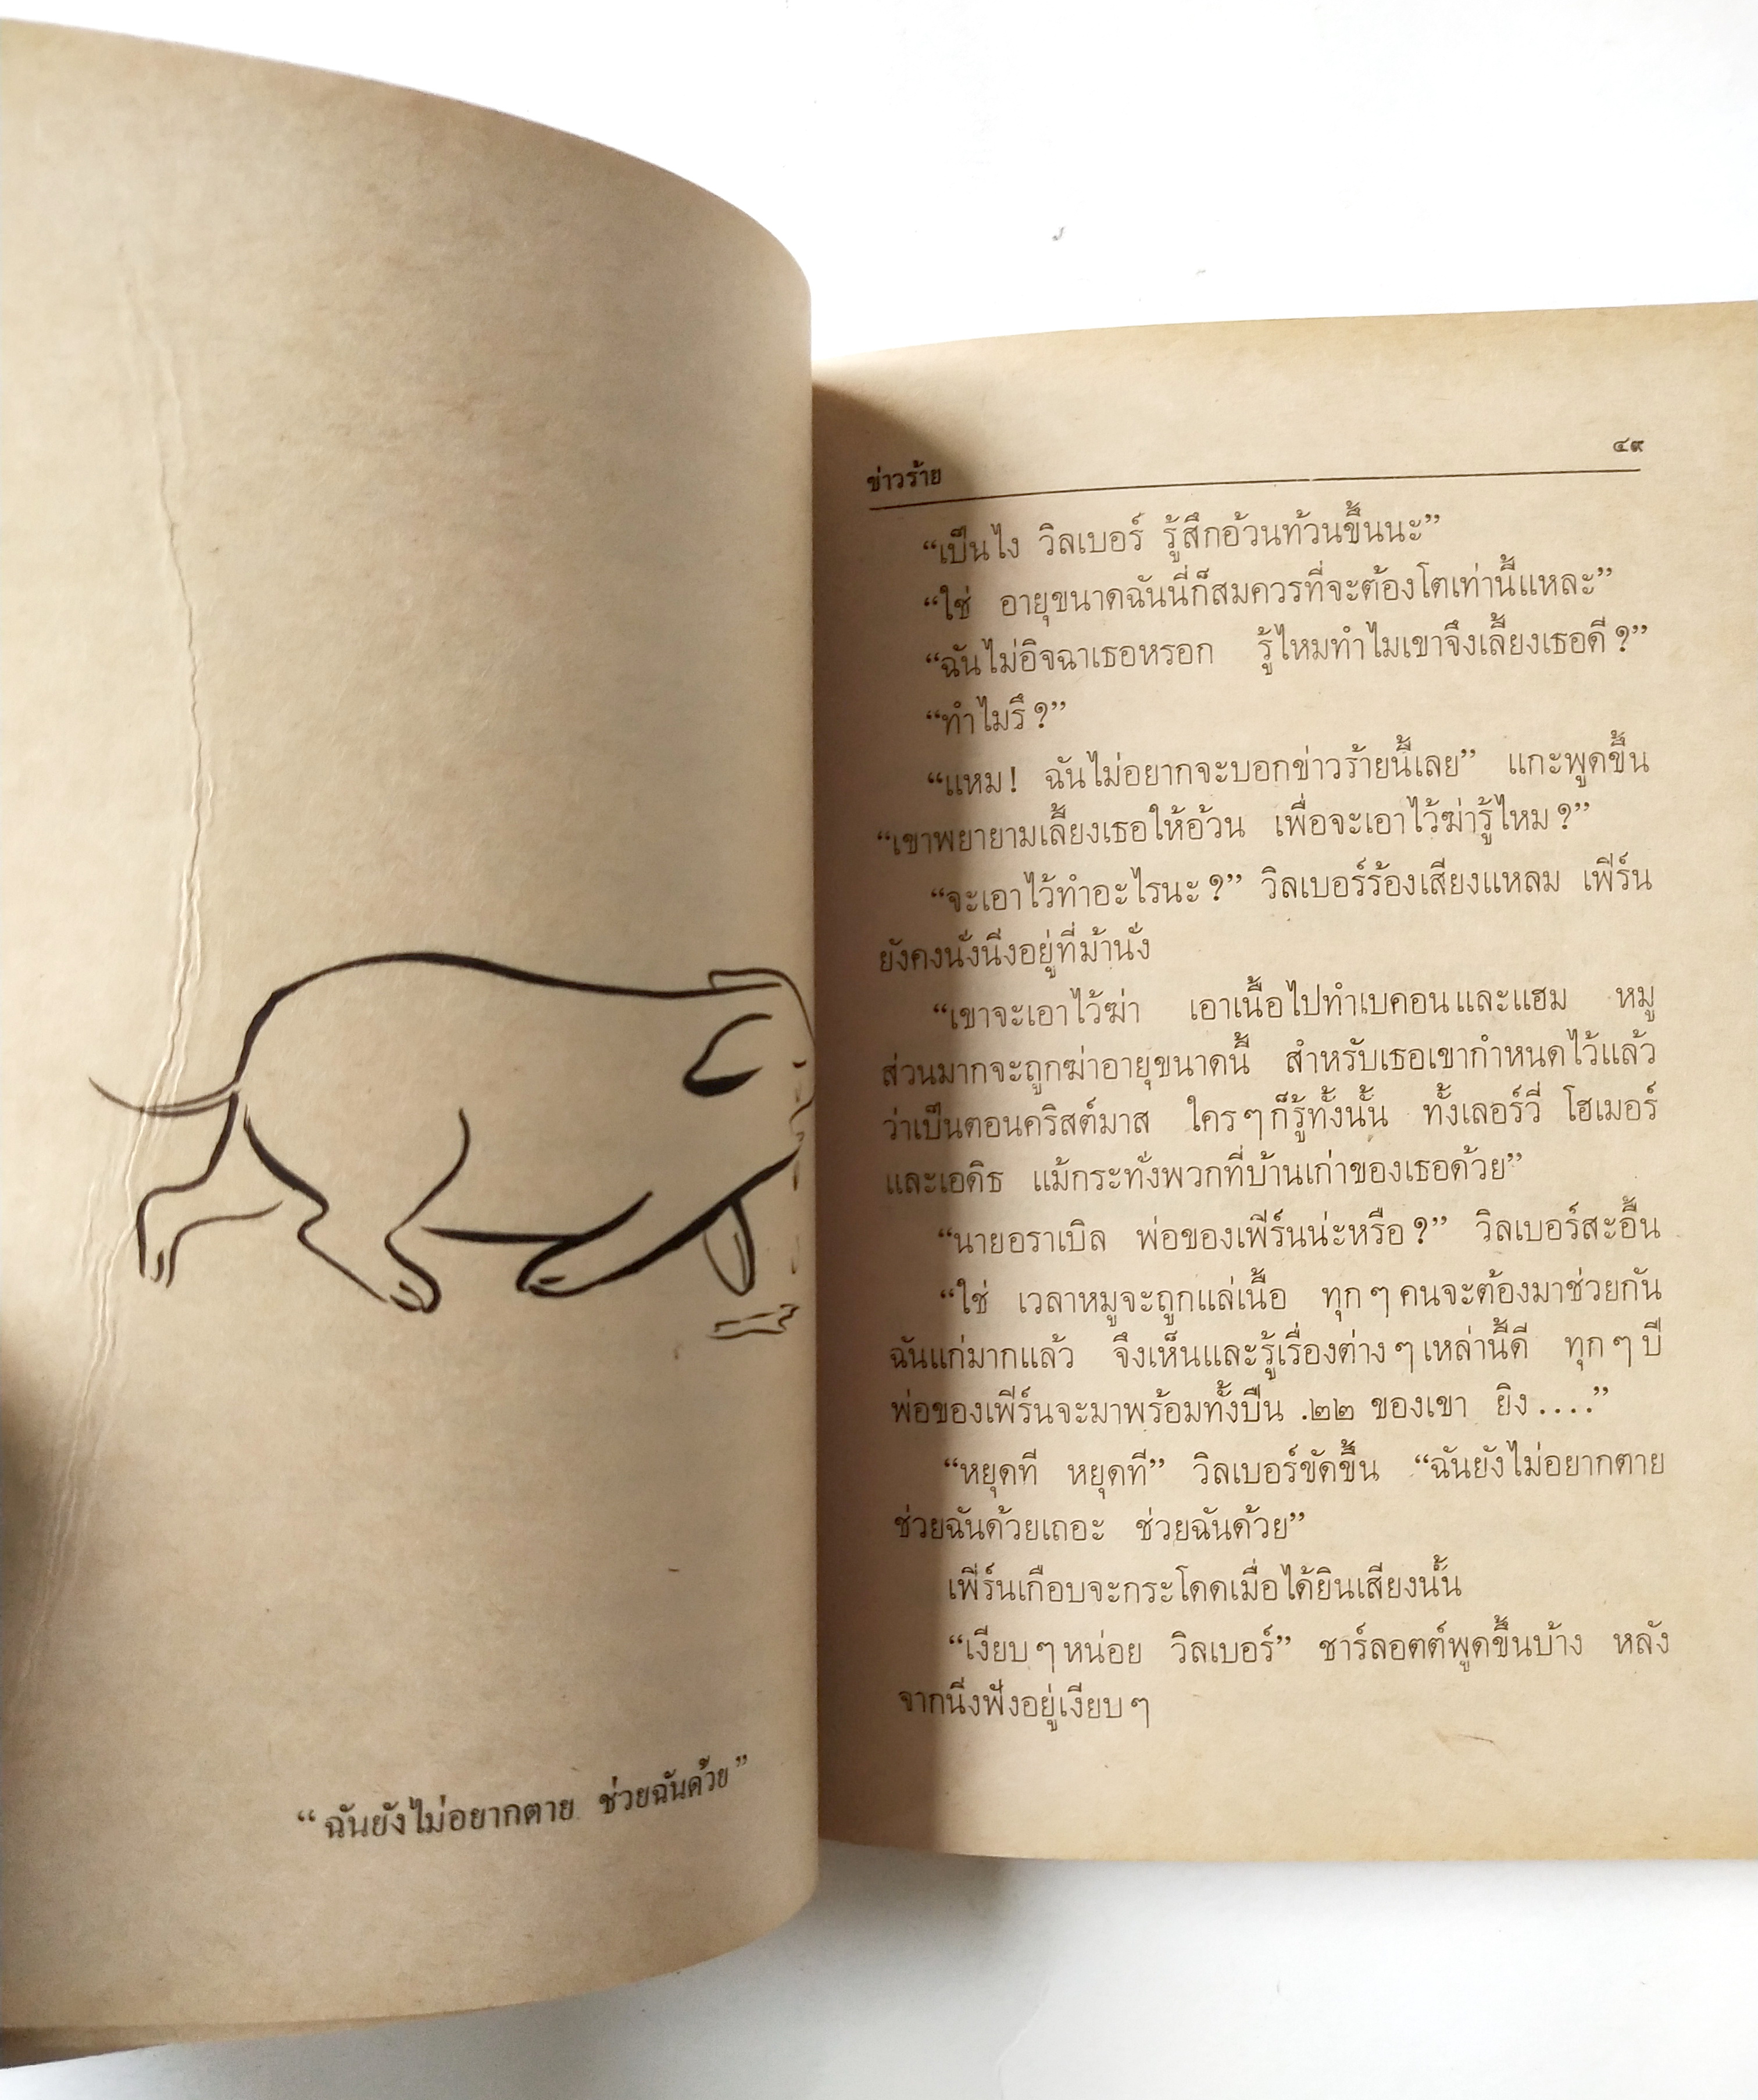 “ฉันยังไม่อยากตาย ช่วยฉันด้วย”
ข่าวร้าย ๔๙
“เป็นไง วิลเบอร์ รู้สึกอ้วนท้วนขึ้นนะ”
“ใช่ อายุขนาดฉันนี่ก็สมควรที่จะต้องโตเท่านี้แหละ”
“ฉันไม่อิจฉาเธอหรอก รู้ไหมทำไมเขาจึงเลี้ยงเธอดี ?”
“ทำไมรึ ?”
“แหม ! ฉันไม่อยากจะบอกข่าวร้ายนี้เลย” แกะพูดขึ้น
“เขาพยายามเลี้ยงเธอให้อ้วน เพื่อจะเอาไว้ฆ่ารู้ไหม ?”
“จะเอาไว้ทำอะไรนะ ?” วิลเบอร์ร้องเสียงแหลม เฟิร์น
ยังคงนั่งนิ่งอยู่ที่ม้านั่ง
“เขาจะเอาไว้ฆ่า เอาเนื้อไปทำเบคอนและแฮม หมู
ส่วนมากจะถูกฆ่าอายุขนาดนี้ สำหรับเธอเขากำหนดไว้แล้ว
ว่าเป็นตอนคริสต์มาส ใคร ๆ ก็รู้ทั้งนั้น ทั้งเลอร์วี โฮเมอร์
และเอดิธ แม้กระทั่งพวกที่บ้านเก่าของเธอด้วย”
“นายอราเบิล พ่อของเฟิร์นน่ะหรือ ?” วิลเบอร์สะอื้น
“ใช่ เวลาหมูจะถูกแล่เนื้อ ทุก ๆ คนจะต้องมาช่วยกัน
ฉันแก่มากแล้ว จึงเห็นและรู้เรื่องต่าง ๆ เหล่านี้ดี ทุก ๆ ปี
พ่อของเฟิร์นจะมาพร้อมทั้งปืน .๒๒ ของเขา ยิง . . . .”
“หยุดที หยุดที” วิลเบอร์ขัดขึ้น “ฉันยังไม่อยากตาย
ช่วยฉันด้วยเถอะ ช่วยฉันด้วย”
เฟิร์นเกือบจะกระโดดเมื่อได้ยินเสียงนั้น
“เงียบ ๆ หน่อย วิลเบอร์” ชาร์ลอตต์พูดขึ้นบ้าง หลัง
จากนิ่งฟังอยู่เงียบ ๆ